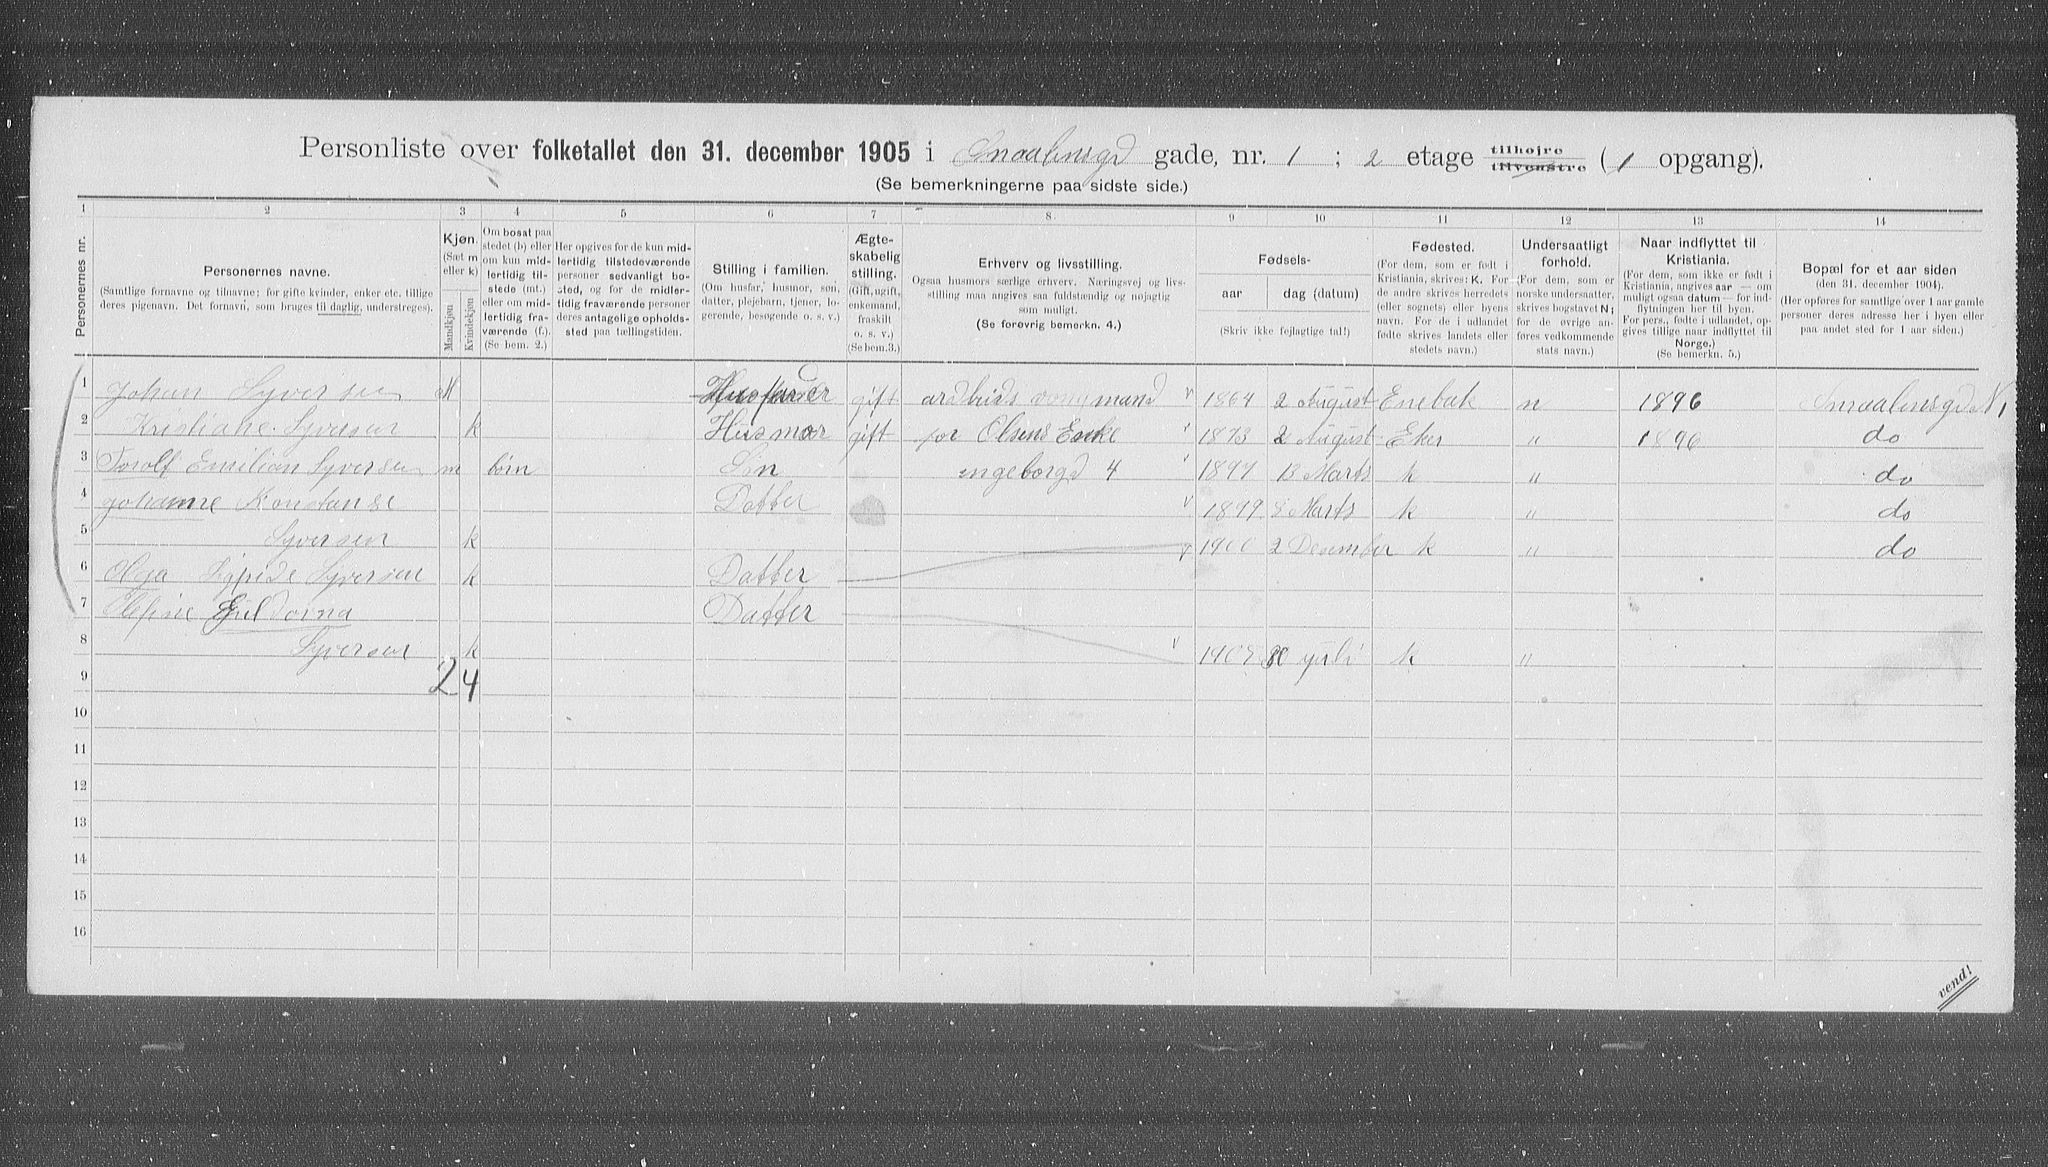 Personliste over folketallet den 31. december 1905 i Smaalensgd gade, nr. 1 ; 2 etage tilhøjre tilvenstre (1 opgang).
(Se bemerkningerne paa sidste side.)
1 2 3 4 5 6 7 8 9 10 11 12 13 14
Personernes nr.
Personernes navne.
(Samtlige fornavne og tilnavne; for gifte kvinder, enker etc. tillige deres pigenavn. Det fornavn, som bruges til daglig, understreges).
Kjøn.
(Sæt m eller k)
Mandkjøn
Kvindekjøn
Om bosat paa stedet (b) eller om kun midlertidig tilstede (mt.) eller om midlertidig fraværende (f.). (Se bem. 2.)
Her opgives for de kun midlertidig tilstedeværende personer sedvanligt bosted, og for de midlertidig fraværende personer deres antagelige opholdssted paa tællingstiden.
Stilling i familien.
(Om husfar, husmor, søn, datter, plejebarn, tjener, logerende, besøgende o. s. v.)
Ægteskabelig stilling.
(Gift, ugift, enkemand, fraskilt o. s. v.)
(Se bem. 3.)
Erhverv og livsstilling.
Ogsaa husmors særlige erhverv. Næringsvej og livsstilling maa angives saa fuldstændig og nøjagtig som muligt.
(Se forøvrig bemerkn. 4.)
Fødsels-
aar
dag (datum)
(Skriv ikke fejlagtige tal!)
Fødested.
(For dem, som er født i Kristiania, skrives: K. For de andre skrives herredets (eller sognets) eller byens navn. For de i udlandet fødte skrives landets eller stedets navn.)
Undersaatligt forhold.
(For dem, som er norske undersaatter, skrives bogstavet N; for de øvrige anføres vedkommende stats navn.)
Naar indflyttet til Kristiania.
(For dem, som ikke er født i Kristiania, angives aar — om muligt ogsaa datum — for indflytningen her til byen. For pers., fødte i udlandet, opgives tillige naar indflyttet til Norge.)
(Se bemerkn. 5.)
Bopæl for et aar siden
(den 31. december 1904).
(Her opføres for samtlige over 1 aar gamle personer deres adresse her i byen eller paa andet sted for 1 aar siden.)
1 Johan Syversen M Husfader gift 1864 2 August Enebak n 1896 Smaalensgd N 1
2 Kristiane Syversen k Husmor gift for Olsens Enke 1873 2 August Eker " 1896 do
3 Torolf Emilian Syversen m børn Søn ingeborgd 4 1897 13 Marts k " do
4 Johanne Konstanse Datter 1899 8 Marts k " do
5 Syversen k 1900 2 Desember k " do
6 Olga Sigfride Syversen k Datter
7 Olefine Guldorna Datter
8 Syversen k 30 juli k "
9 2 4
10
11
12
13
14
15
16
vend!